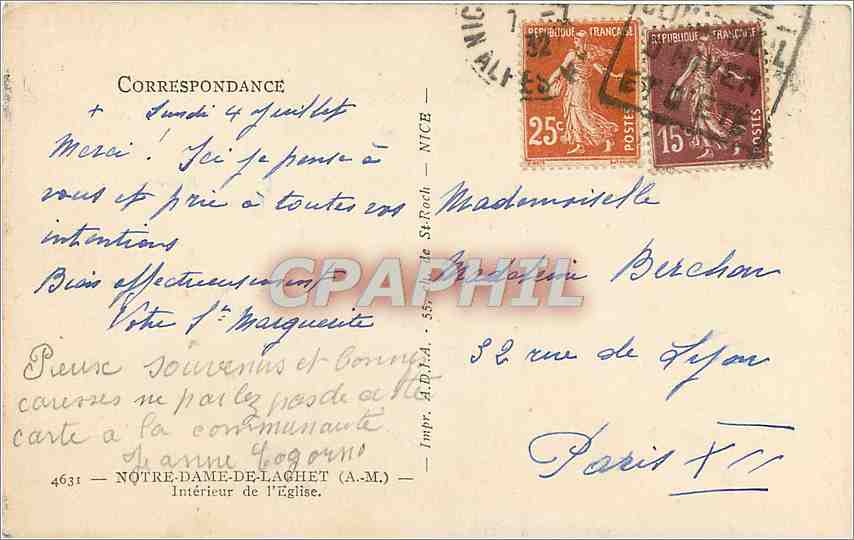 CORRESPONDANCE
+ Lundi 4 Juillet
Merci ! Ici je pense à
vous et prie à toutes vos
intentions
Bien affectueusement
Votre Sr Marguerite
Pieux souvenirs et bonnes
caresses ne parlez pas de cette
carte à la communauté
Jeanne
4631 — NOTRE-DAME-DE-LAGHET (A.-M.) —
Intérieur de l'Eglise.
— Impr. A.D.I.A. - 55, de St-Roch — NICE —
NIC
7 -7
32
ALPES
REPUBLIQUE FRANÇAISE
25c
POSTES
REPUBLIQUE FRANÇAISE
15c
POSTES
D'HIVER
ET D'ETE
Mademoiselle
Madeleine Berchon
32 rue de Lyon
Paris XII
CPAPHIL